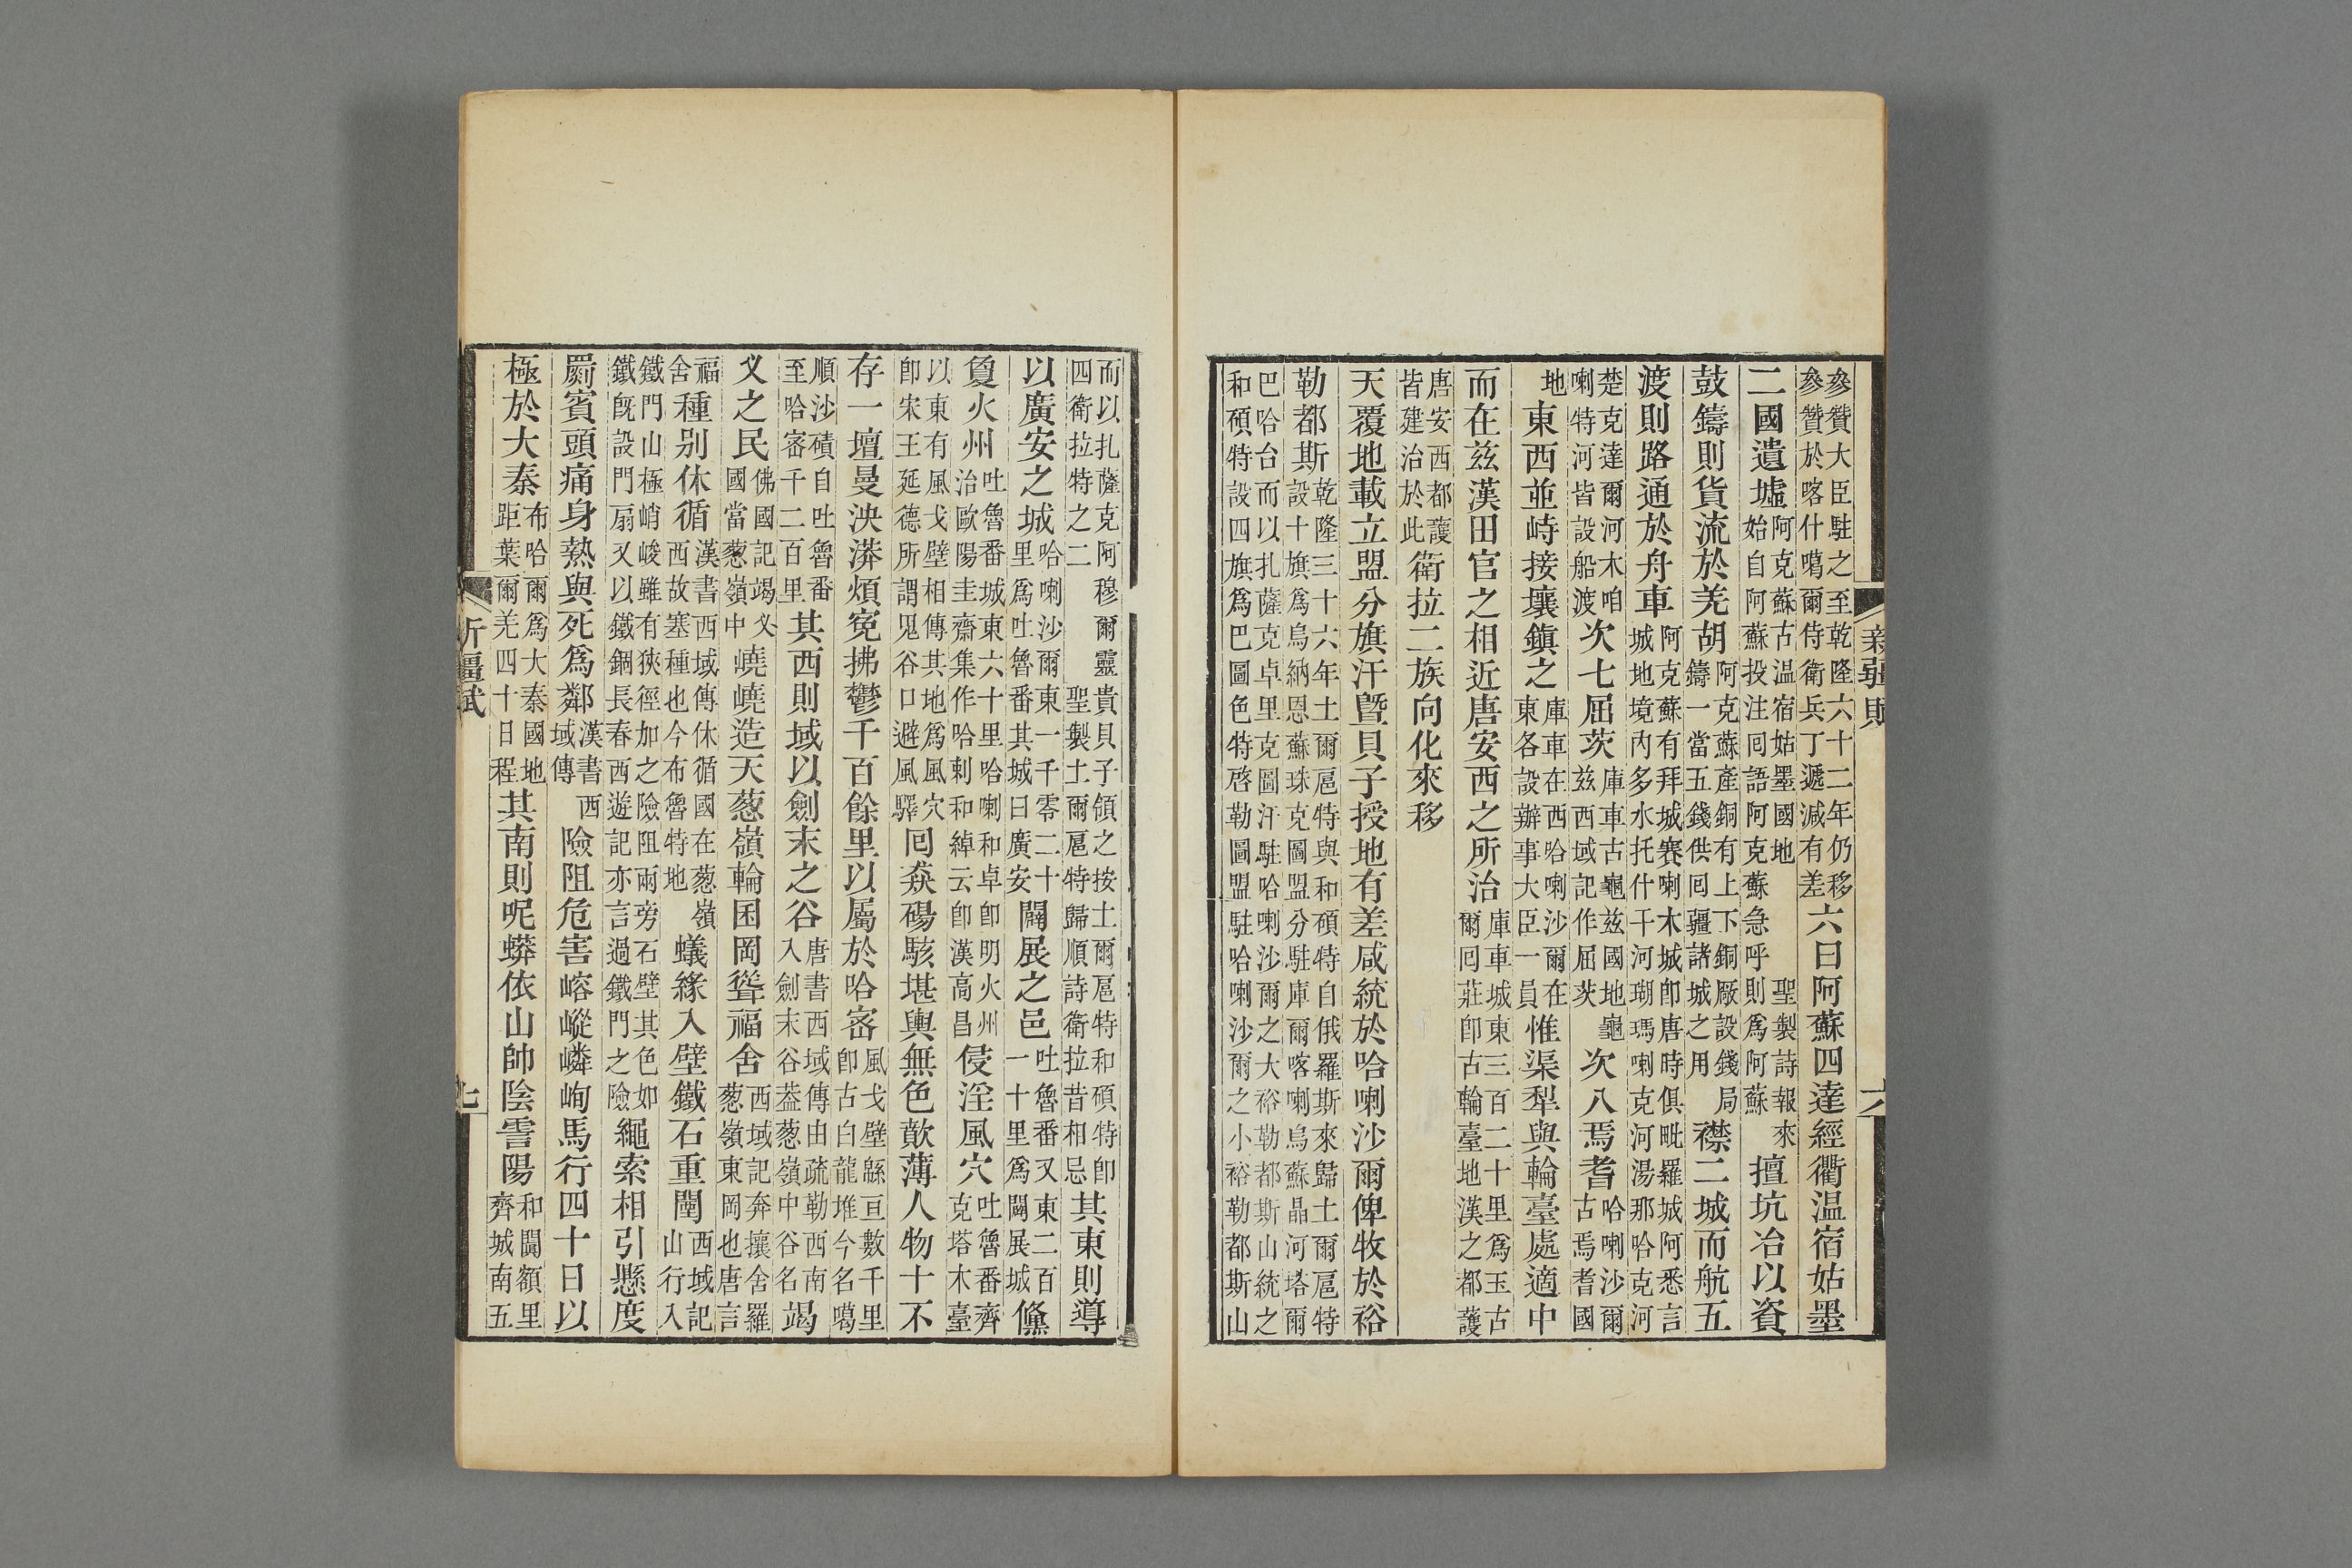 參贊大臣駐之至乾隆六十二年仍移參贊於喀什噶爾侍衛兵丁遞減有差六曰阿蘇四達經衢温宿姑墨
二國遺墟阿克蘇古温宿姑墨國地聖製詩報來始自阿蘇投注囘語阿克蘇急呼則爲阿蘇擅坑冶以資
鼓鑄則貨流於羌胡阿克蘇產銅有上下銅厰設錢局鑄一當五錢供囘疆諸城之用襟二城而航五
渡則路通於舟車阿克蘇有拜城賽喇木城卽唐時俱毗羅城阿悉言城地境內多水托什干河瑚瑪喇克河湯那哈克河
楚克達爾河木咱喇特河皆設船渡次七屈茨庫車古龜兹國地龜兹西域記作屈茨次八焉耆哈喇沙爾古焉耆國
地東西並峙接壤鎮之庫車在西哈喇沙爾在東各設辦事大臣一員惟渠犁與輪臺處適中
而在兹漢田官之相近唐安西之所治庫車城東三百二十里爲玉古爾囘莊卽古輪臺地漢之都護
唐安西都護皆建治於此衛拉二族向化來移
天覆地載立盟分旗汗曁貝子授地有差咸統於哈喇沙爾俾牧於裕
勒都斯乾隆三十六年土爾扈特與和碩特自俄羅斯來歸土爾扈特設十旗爲烏納恩蘇珠克圖盟分駐庫爾喀喇烏蘇晶河塔爾
巴哈台而以扎薩克卓里克圖汗駐哈喇沙爾之大裕勒都斯山統之和碩特設四旗爲巴圖色特啓勒圖盟駐哈喇沙爾之小裕勒都斯山
新疆賦
六
而以扎薩克阿穆爾靈貴貝子領之按土爾扈特和碩特卽四衛拉特之二聖製土爾扈特歸順詩衛拉昔相忌其東則導
以廣安之城哈喇沙爾東一千零二十里爲吐魯番其城曰廣安闢展之邑吐魯番又東二百一十里爲闢展城儵
敻火州吐魯番城東六十里哈喇和卓卽明火州治歐陽圭齋集作哈剌和綽云卽漢高昌侵淫風穴吐魯番齊克塔木臺
以東有風戈壁相傳其地爲風穴卽宋王延德所謂鬼谷口避風驛囘猋碭駭堪輿無色歊薄人物十不
存一壇曼泱漭煩寃拂鬱千百餘里以屬於哈密風戈壁緜亘數千里卽古白龍堆今名噶
順沙磧自吐魯番至哈密千二百里其西則域以劍末之谷唐書西域傳由疏勒西南入劍末谷葢葱嶺中谷名竭
叉之民佛國記竭叉國當葱嶺中嶢嶢造天葱嶺輪囷岡聳福舍西域記奔攘舍羅葱嶺東岡也唐言
福舍種别休循漢書西域傳休循國在葱嶺西故塞種也今布魯特地蟻緣入壁鐵石重闉西域記山行入
鐵門山極峭峻雖有狹徑加之險阻兩旁石壁其色如鐵旣設門扇又以鐵錮長春西遊記亦言過鐵門之險繩索相引懸度
罽賓頭痛身熱與死爲鄰漢書西域傳險阻危害㟅嵷嶙峋馬行四十日以
極於大秦布哈爾爲大秦國地距葉爾羌四十日程其南則呢蟒依山帥陰雪陽和闐額里齊城南五
新疆賦
七